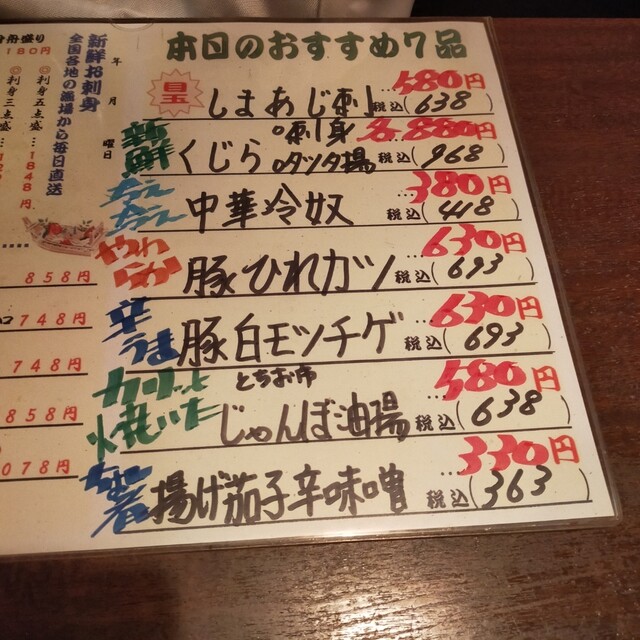 本日のおすすめ7品
目玉 しまあじ刺 …580円 税込(638)
新鮮 くじら ○刺身 ○タツタ揚 各880円 税込(968)
冷え冷え 中華冷奴 …380円 税込(418)
やわらか 豚ひれカツ …630円 税込(693)
辛うま 豚白モツチゲ …630円 税込(693)
カリッと焼いた とちお市 じゃんぼ油揚 …580円 税込(638)
揚げ茄子辛味噌 …330円 税込(363)
年 月 曜日
新鮮お刺身
全国各地の漁場から毎日直送
180円
◎刺身五点盛…1848円
◎刺身三点盛…
858円
748円
748円
858円
078円